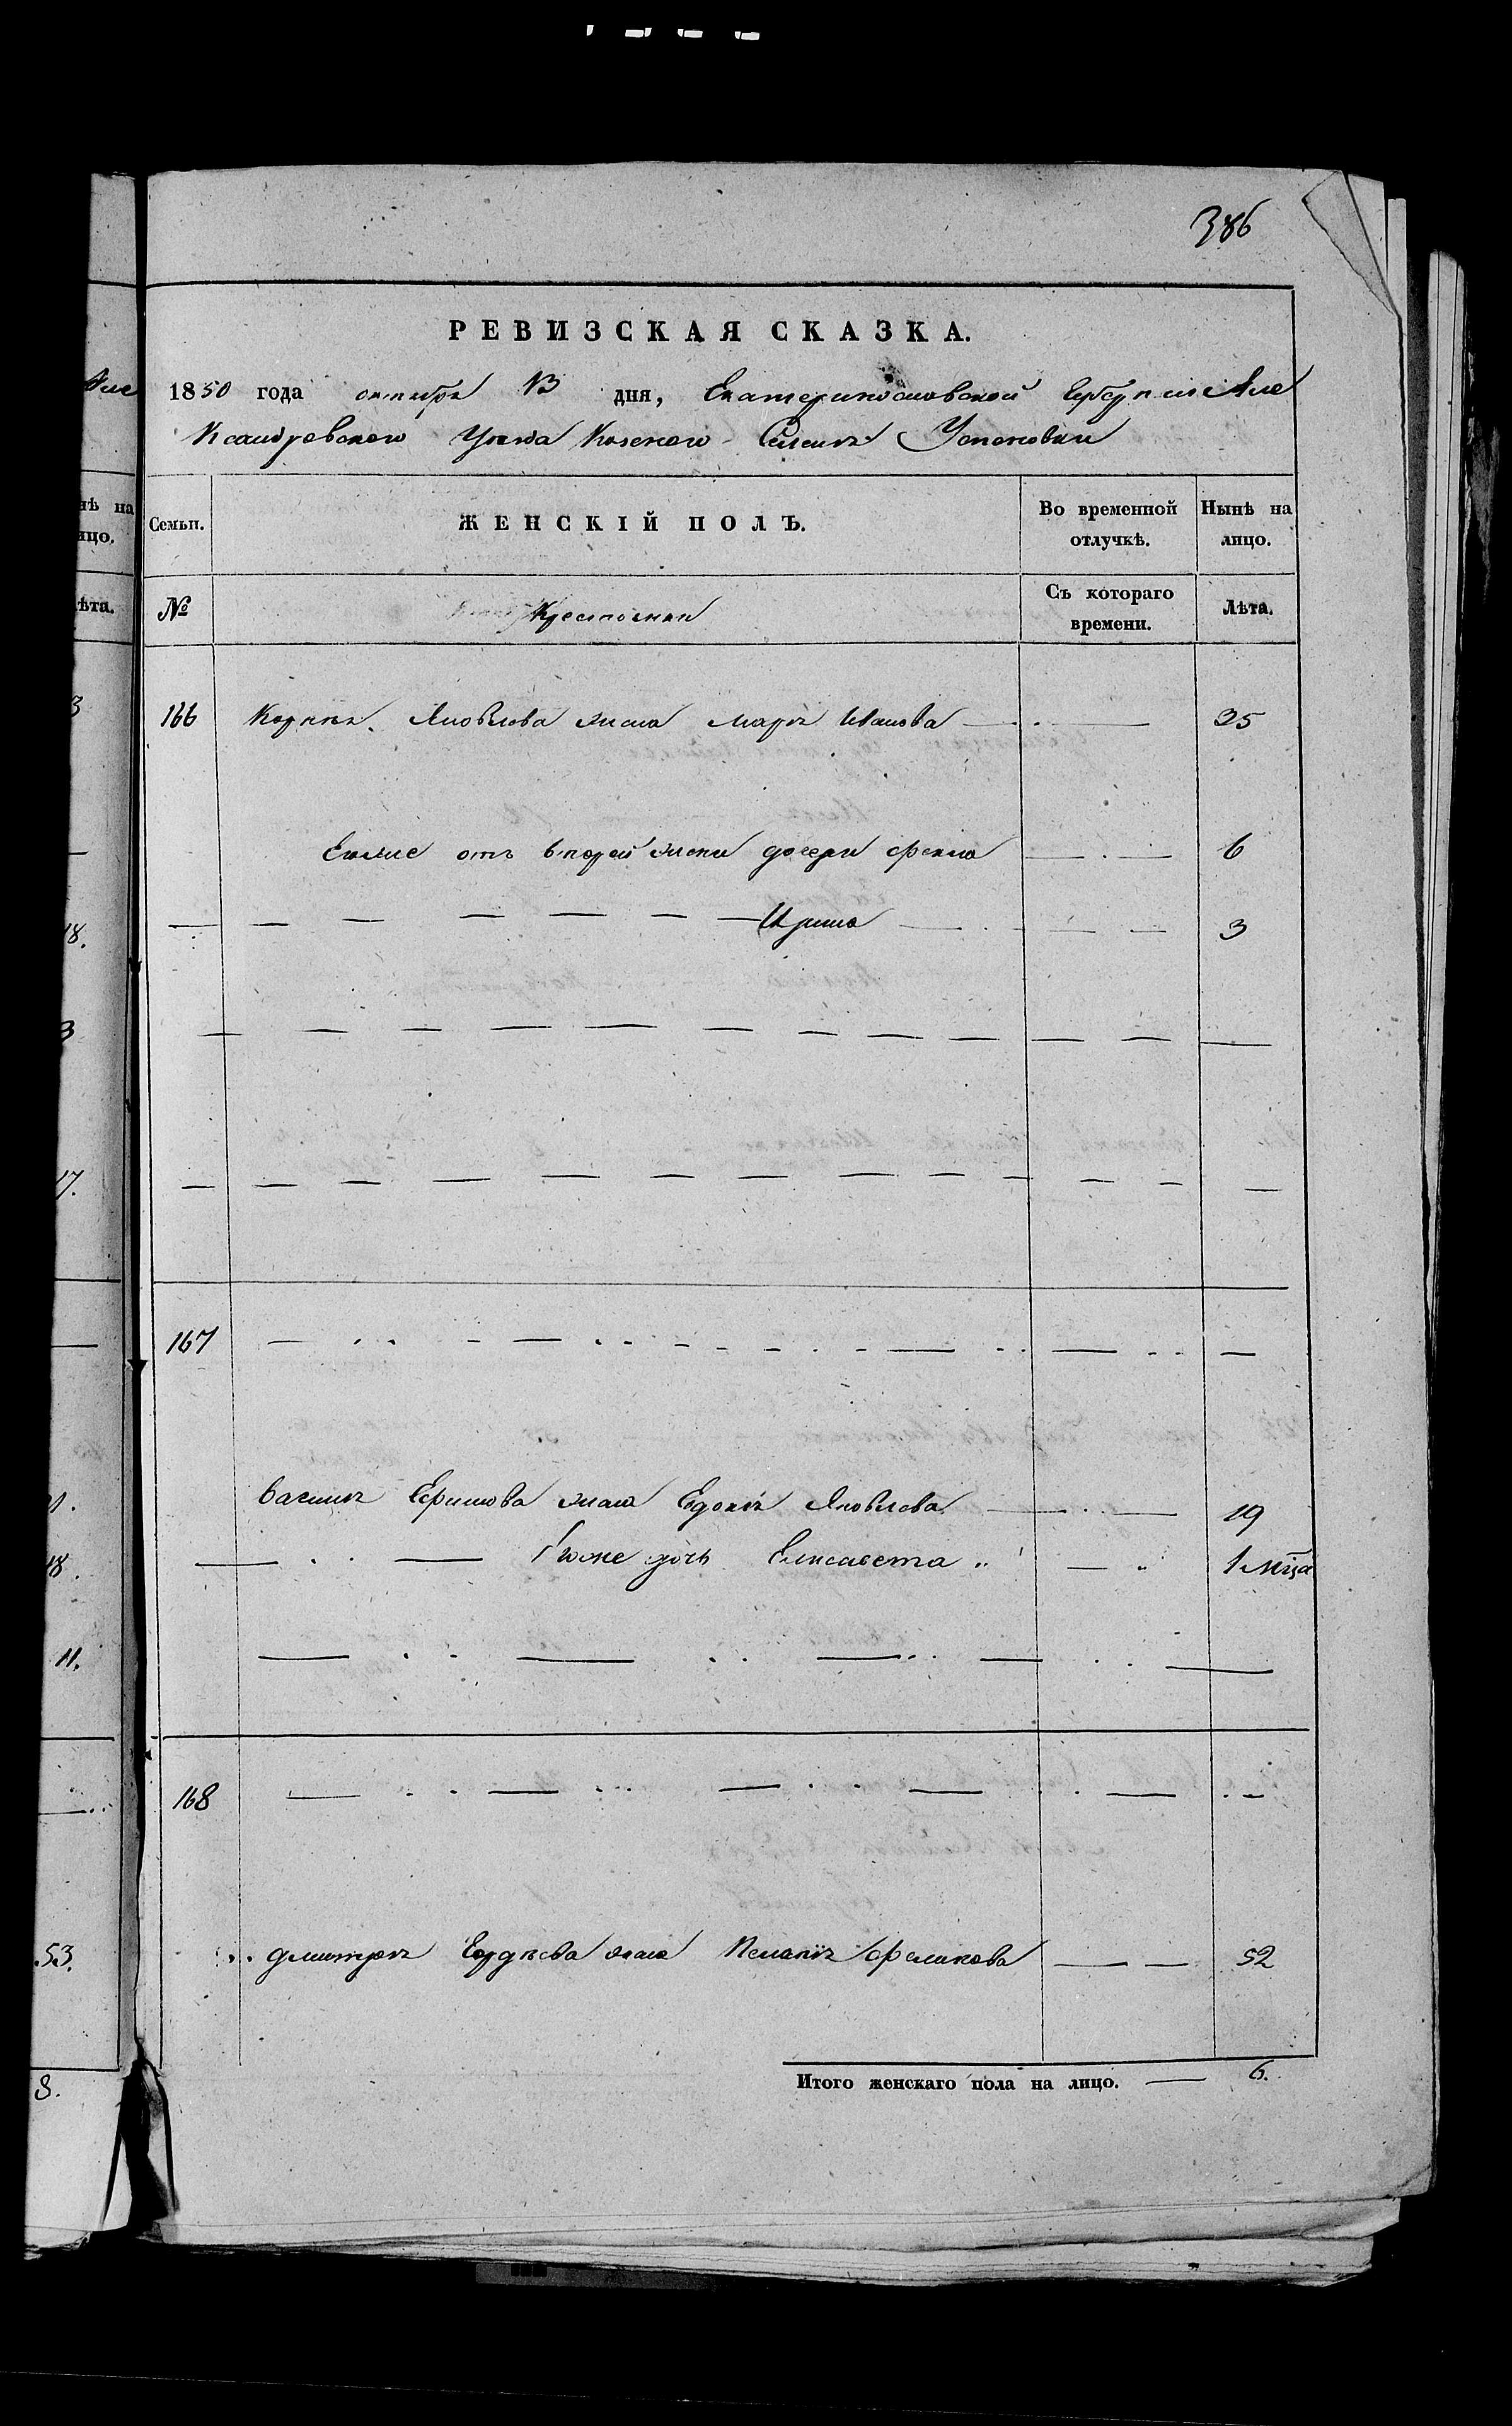 386
РЕВИЗСКАЯ СКАЗКА.
1850 года октября 13 дня, Екатеринославской Губернии Але
ксандровскаго Уезда Казенного Селения Успеновки
нѣ на
лицо.
ѣта.
Семьи.
ЖЕНСКІЙ ПОЛЪ.
Во временной отлучкѣ.
Нынѣ на лицо.
№
Крестьянки
Съ котораго времени.
Лѣта.
166 Корнея Яковлева жена Марья Иванова — 35
Его же отъ второй жены дочери Фекла — 6
Ирина — 3
167
Василия Ефимова жена Евдокия Яковлева — 19
Его же дочь Елисавета — 1 мца
168
Дмитрия Гордѣева жена Пелагия Филикова — 52
Итого женскаго пола на лицо. — 6.
18.
3
17.
18.
11.
53.
8.